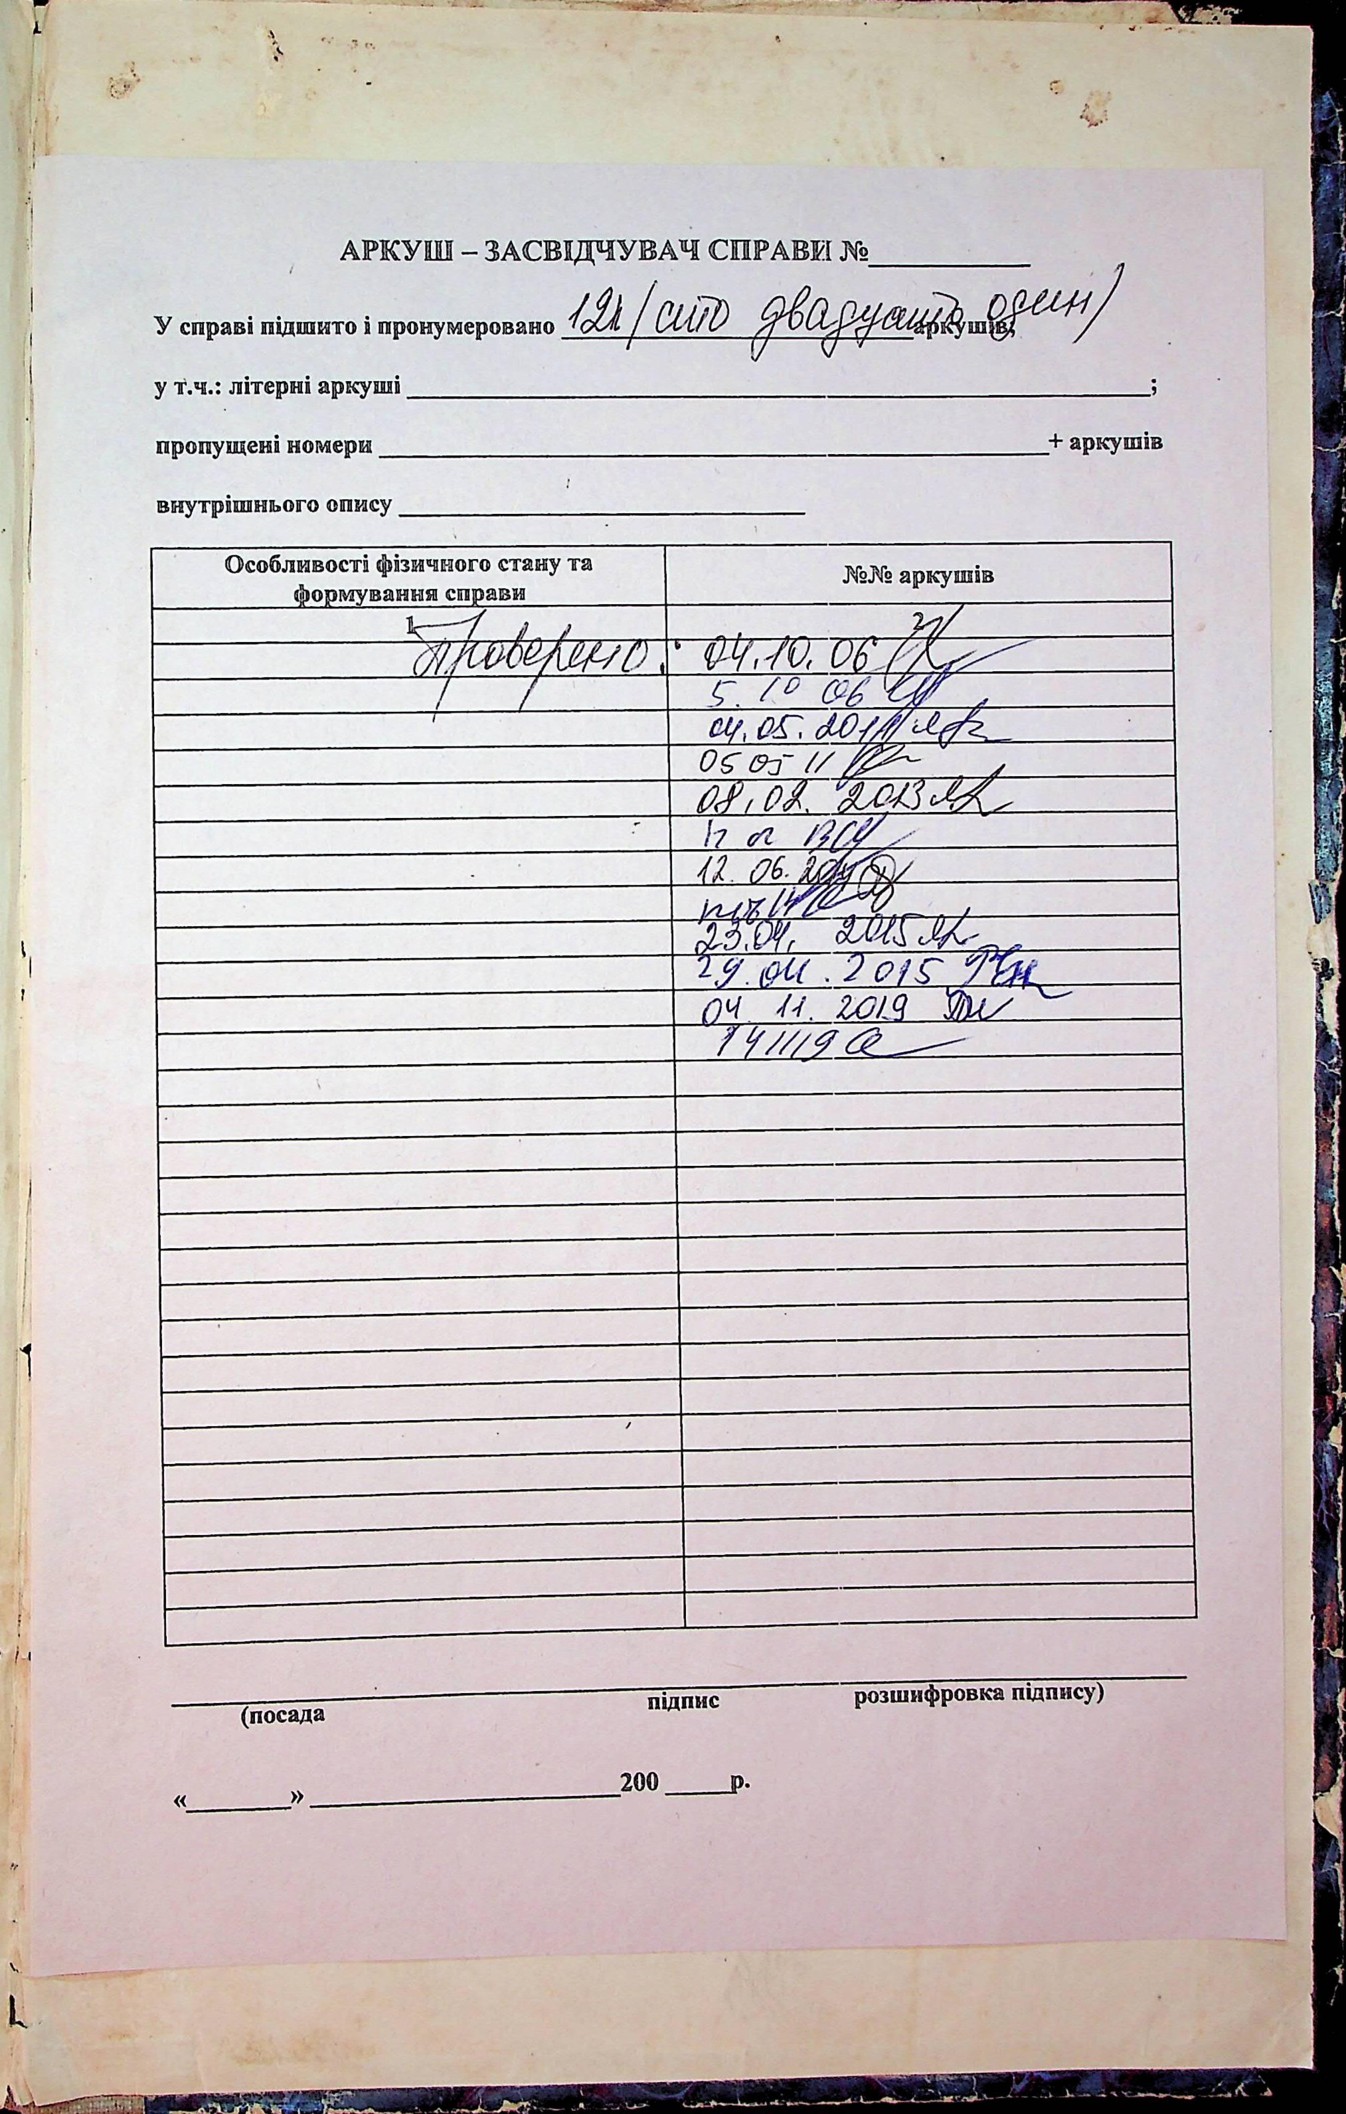 АРКУШ – ЗАСВІДЧУВАЧ СПРАВИ №__________
У справі підшито і пронумеровано 121 /сто двадцять один/ аркушів;
у т.ч.: літерні аркуші ____________________;
пропущені номери ____________________+ аркушів
внутрішнього опису ____________________
Особливості фізичного стану та формування справи
№№ аркушів
1 2
Проверено: 04.10.06
5. 10 06
04.05.2011
05 05 11
08.02. 2013
12. 06.
23.04. 2015
29.04.2015
04 11. 2019
141119
(посада підпис розшифровка підпису)
«________» ____________________200 _____р.